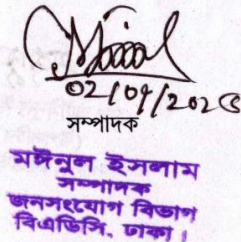 সম্পাদক
মঈনুল ইসলাম
সম্পাদক
জনসংযোগ বিভাগ
বিএডিসি, ঢাকা।